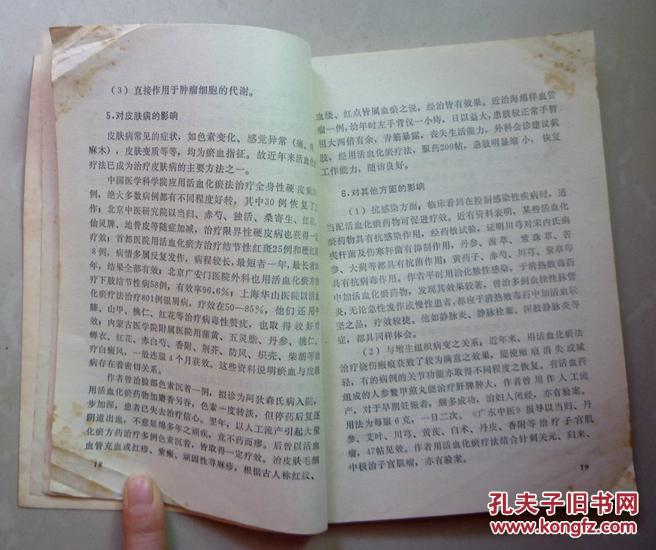 (3)直接作用于肿瘤细胞的代谢。
5.对皮肤病的影响
皮肤病常见的症状,如色素变化、感觉异常(痛、痒、
麻木),皮肤变质等等,均为瘀血指征。故近年来活血化
疗法已成为治疗皮肤病的主要方法之一。
中国医科学院应用活血化瘀法治疗全身性硬皮病
例,绝大多数病例都有不同程度好转,其中30例恢复了
作;北京中医研究院以当归、赤芍、独活、桑寄生、红花、
仙灵脾、地骨皮等随症加减,治疗限界性硬皮病也获得一定
疗效;首都医院用活血化瘀方治疗结节性红斑25例和硬红斑
8例,病情多属反复发作,病程较长,最短者一年,最长者
年,结果全部有效;北京广安门医院外科也用活血化瘀方
下肢结节性病58例,有效率96.6%;上海华山医院以活
化瘀疗法治疗801例银屑病,疗效在50—85%,他们还用
膝、山甲、桃仁、红花等治疗病毒性赘疣,也取得较好疗
疗;内蒙古医学院附属医院用蒲黄、五灵脂、丹参、桃仁、
蝉衣、红花、赤白芍、香附、荆芥、防风、枳壳、柴胡等
疗白癜风,一般连服4个月获效。这些资料说明瘀血与皮肤
病存在着密切关系。
作者曾治脸部色素沉着一例,拟诊为阿狄森氏病入院,
用活血化瘀药物加麝香另吞,色素一度转淡,但停药后复逐
步加深,患者已失去治疗信心。里年,以人工流产引起大量
阴道出血,不意延绵多年之顽疾,竟不药而瘳。后曾以活血
化瘀方药治疗多例色素沉着,皆取得一定疗效。治皮肤毛细
血管充血或红疹、紫癜、顽固性荨麻疹,根据古人称红纹、
18
血缕、红点皆属血瘀之说,经治皆有效果。近治海绵样血管
瘤一例,幼年时左手背仅一小痔,日以益大,患肢较正常手臂
粗大两倍有余,青筋暴露,丧失生活能力,外科会诊建议截
肢,经用活血化瘀疗法,服药200帖,患肢明显缩小,恢复
工作能力,随访良好。
6.对其他方面的影响
(1)抗感染方面,临床看到在控制感染性疾病时,适
当配活血化瘀药物可促进疗效。近有资料表明,某些活血化
瘀药物具有抗感染作用,经药敏试验,证明川芎对宋内氏痢
疾杆菌及伤寒杆菌有抑制作用,丹参、茜草、紫珠草、苦
参、大蓟等都具有抗菌作用,黄药子、赤芍、川芎、鬼箭羽
等具有抗病毒作用。作者平时用治化脓性感染,于清热败毒药
中加活血化瘀药物,发现其效果较著,曾治多例血栓性脉管
炎,无论急性发作或慢性患者,都应于清热败毒药中加活血软
坚之品,疗效较捷。他如静脉炎、静脉栓塞、深静脉炎等
症,都具同样体会。
(2)与增生组织病变之关系:近年来,用活血化瘀法
治疗烧伤瘢痕获致了较为满意之效果,使瘢痕消失或减
轻,有的病例的关节功能亦取得不同程度之恢复。有活血药
组成的人参鳖甲煎丸能治疗肝脾肿大,作者曾用作人工流
产,对于早期妊娠者,颇多成功,近用以治癌肿,亦有效果。
用法为每服6克,一日二次。《广东中医》报导以当归、丹
参、艾叶、川芎、黄芪、白术、丹皮、香附等治疗子宫
肌瘤,47帖见效。作者用活血化瘀疗法结合针刺关元、归来、
中极治子宫肌瘤,亦有验案。
19
孔夫子旧书网
www.kongfz.com